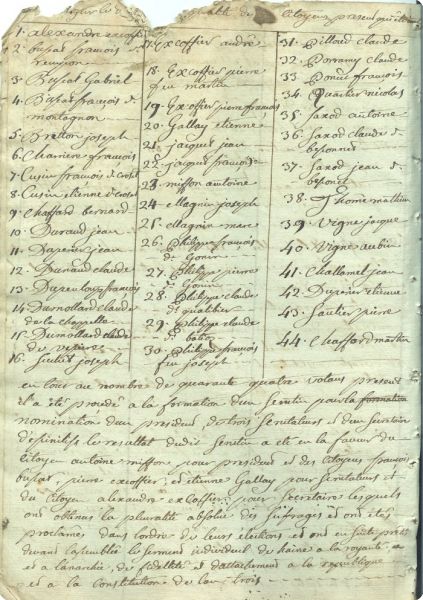 citoyens present
1. alexandre excoffier
2. bussat francois de
3. Bussat Gabriel
4. Bussat francois de
montagnon
5. Bretton joseph
6. Charriere francois
7. Cusin francois de
8. Cusin etienne de
9. Chaffard bernard
10. Duraud jean
11. Duperier jean
12. Dunand claude
13. Duperier louis francois
14. Dumollard claude
de la chappelle
15. Dumollard claude
de
16. joseph
17. Excoffier andré
18. Excoffier pierre
feu martin
19. Excoffier pierre francois
20. Gallay etienne
21. jacquet jean
22. jacquet francois
23. miffon antoine
24. magnin joseph
25. magnin marc
26. Philippe francois
de Gonin
27. Philippe pierre
de Gonin
28. Philippe claude
de
29. Philippe claude
de
30. Philippe francois
feu joseph
31. Pilloud claude
32. claude
33. francois
34. Quartier nicolas
35. Saxod antoine
36. Saxod claude de
37. Saxod jean de
38. Thome mathieu
39. Vigne jacque
40. Vigne aubin
41. Challamel jean
42. Duperier etienne
43. Saultier pierre
44. Chaffard martin
en tout au nombre de quarante quatre votans present
il a été procédé a la formation d'un scrutin pour la formation
nomination d'un president, de trois scrutateurs et d'un secretaire
definitifs le resultat dudit scrutin a ete en la faveur du
citoyen antoine miffon pour president et des citoyens francois
bussat, pierre excoffier, et etienne Gallay pour scrutateurs et
du citoyen alexandre excoffier pour secretaire lesquels
ont obtenu la pluralité absolue des suffrages et ont etés
proclamés dans l'ordre de leurs elections et ont en suite preté
devant l'assemblée le serment individuel de haine a la royauté
et a l'anarchie, de fidellité et d'attachement a la republique
et a la constitution de l'an trois